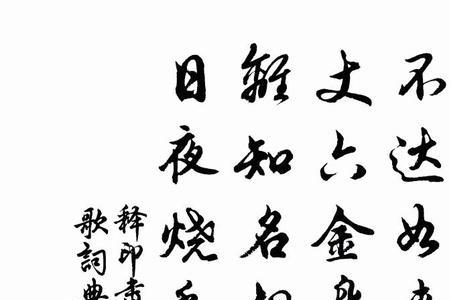 不达如
丈六金
離知名
日夜烧
释印
歌詞典